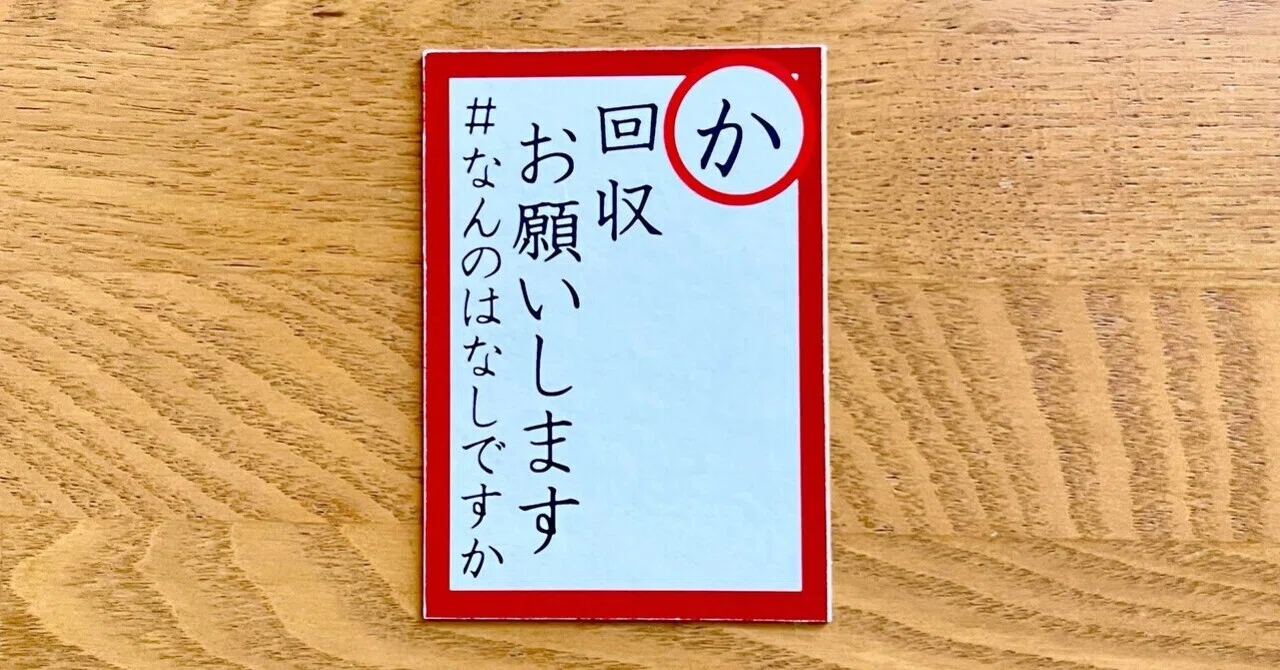 か
回収
お願いします
#なんのはなしですか